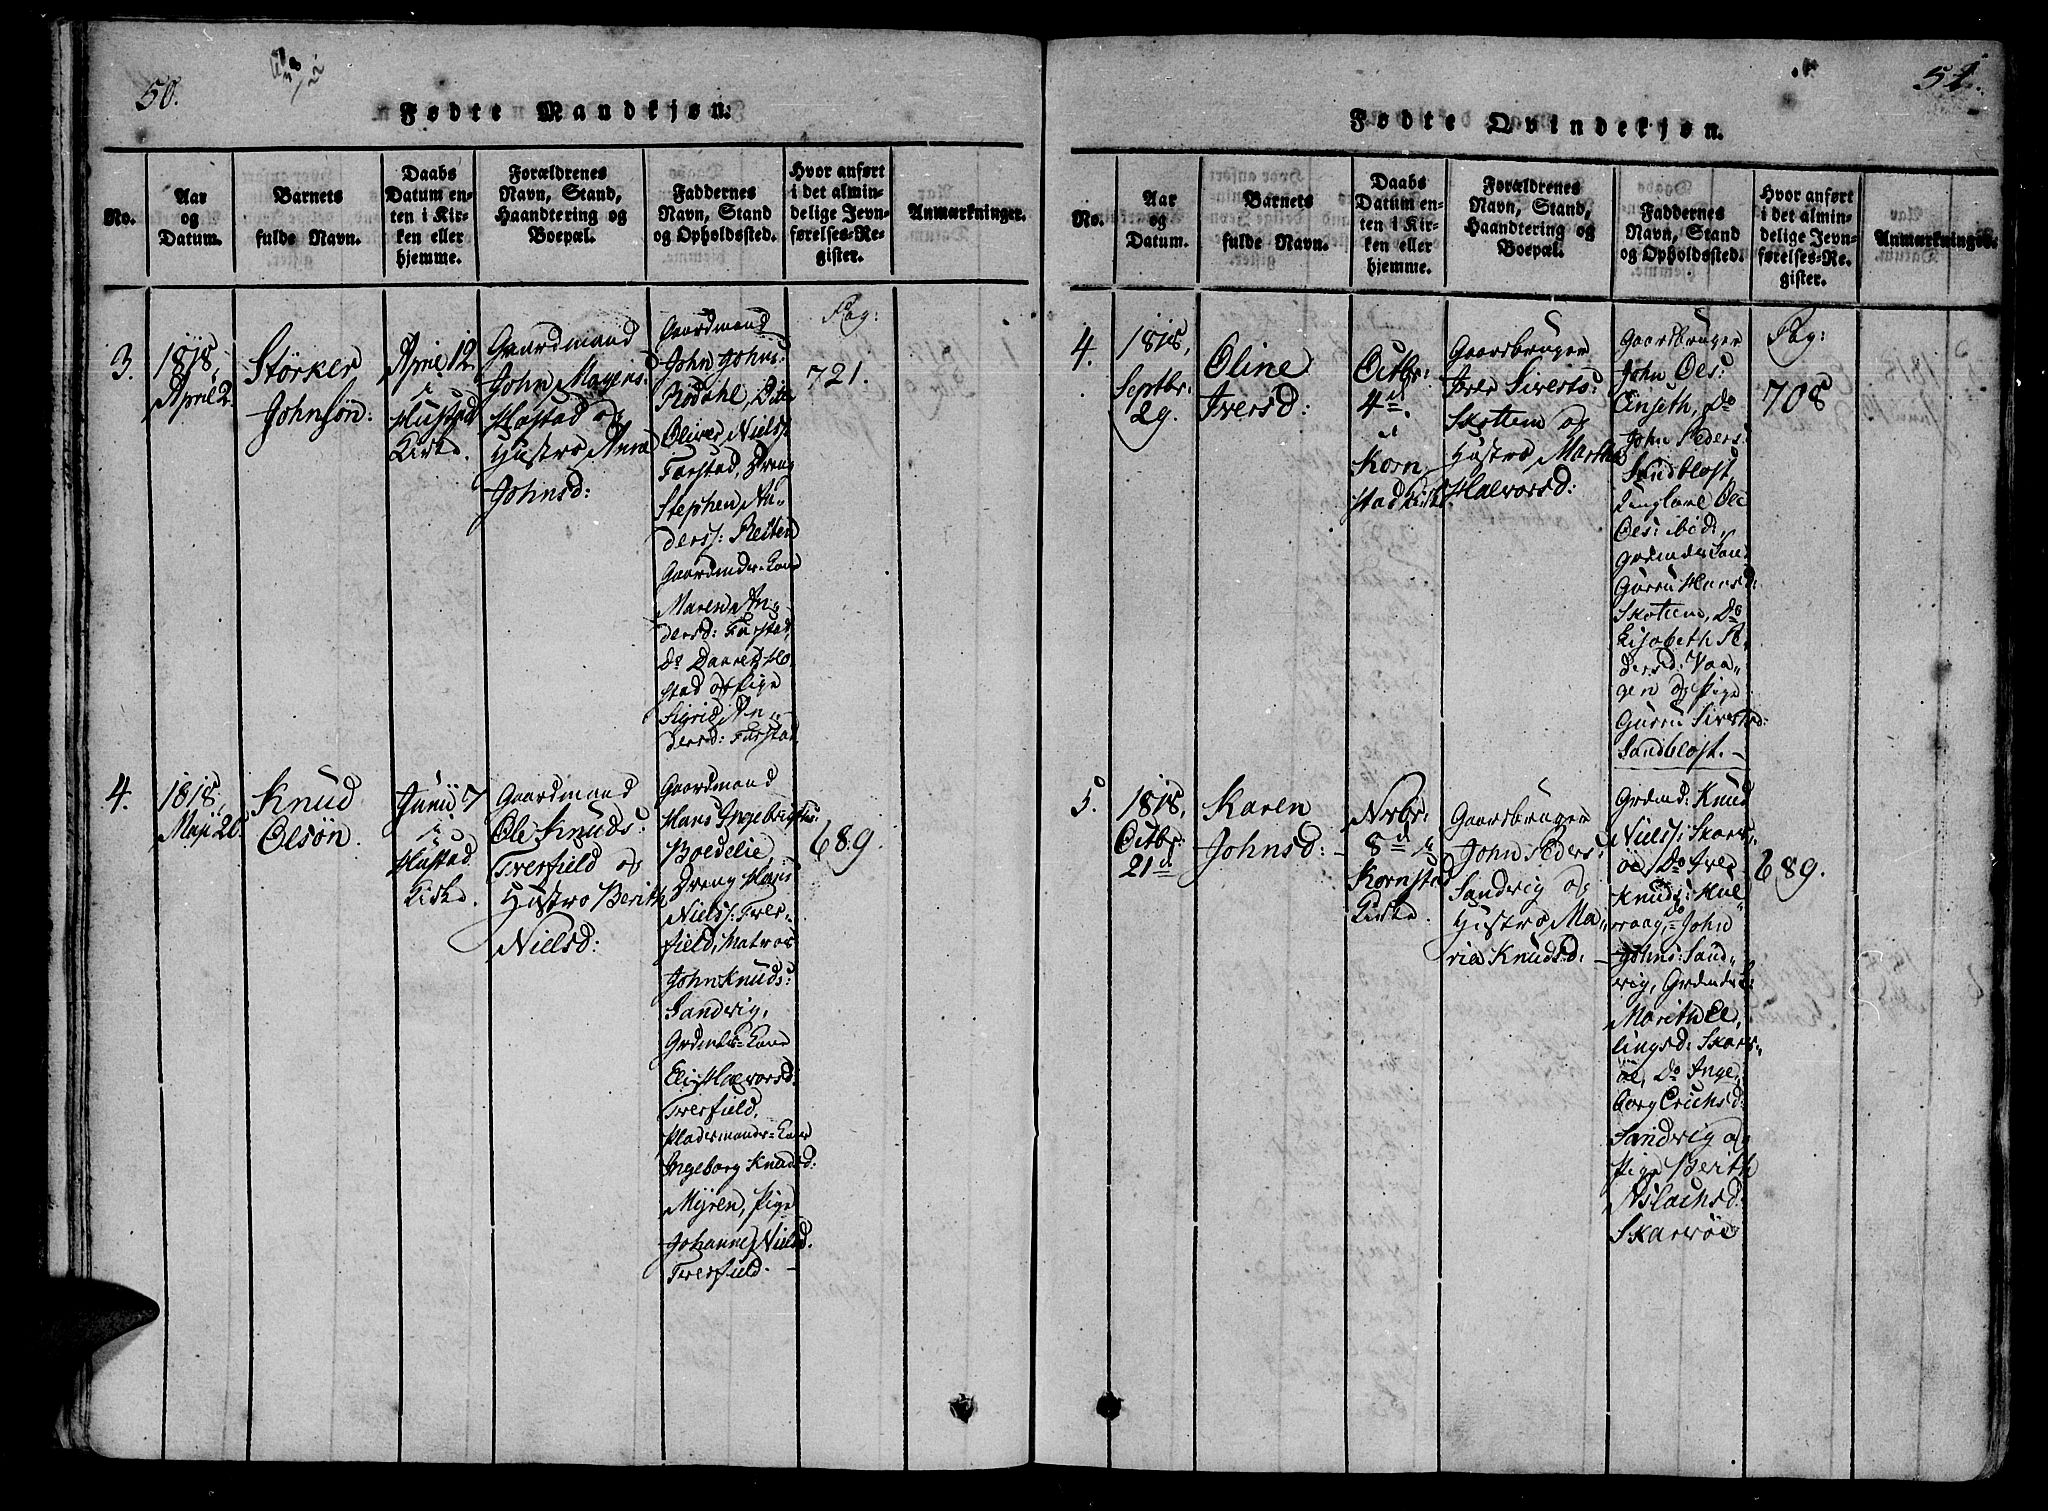 50.
Fødte Mandkjøn.
No.
Aar
og
Datum.
Barnets
fulde Navn.
Daabs
Datum en-
ten i Kir-
ken eller
hjemme.
Forældrenes
Navn, Stand,
Haandtering og
Boepæl.
Faddernes
Navn, Stand
og Opholdssted.
Hvor anført
i det almin-
delige Jevn-
førelses-Re-
gister.
Anmærkninger.
3.
1818,
April 2.
Störker
Johnsön:
April 12
i
Hustad
Kirke.
Gaardmand
John Mogens:
Hostad og
Hustro Anna
Johnsd:
Gaardmand
John Johns:
Rödahl, Ditto
Oliver Niels:
Farstad, Dreng
Stephen An-
ders: Reiten
Gaardmds-Kone
Maren An-
dersd: Farstad,
do Daaret Ho-
stad og Pige
Sigrid An-
dersd: Farstad
Pag:
721.
4.
1818,
Maji 20.
Knud
Olsön.
Junii 7
i
Hustad
Kirke.
Gaardmand
Ole Knuds:
Tverfield og
Hustro Berith
Nielsd:
Gaardmand
Hans Ingebrigts:
Boedelie,
Dreng Hans
Niels: Tver-
field, Matros
John Knuds:
Sandvig,
Grdmds-Kone
Eli Halvorsd:
Tverfield,
Pladsmands-Kone
Ingeborg Knudsd:
Myren, Pige
Johanne Nielsd.
Tverfield. -
689.
51.
Fødte Qvindekjøn.
No.
Aar
og
Datum.
Barnets
fulde Navn.
Daabs
Datum en-
ten i Kir-
ken eller
hjemme.
Forældrenes
Navn, Stand,
Haandtering og
Boepæl.
Faddernes
Navn, Stand
og Opholdssted.
Hvor anført
i det almin-
delige Jevn-
førelses-Re-
gister.
Anmærkninger.
4.
1818,
Septbr:
29.
Oline
Iversd:
Octbr:
4de
i
Korn
stad Kirke
Gaardbruger
Iver Siverts:
Skottem og
Hustro Marthe
Halvorsd:
Gaardbruger
John Oles:
Enseth, Do
John Peders:
Sandblost,
Ungkarl Ole
Oles: ibid:,
Guru Hansd:
Skottem, Do
Lisabeth Pe-
dersd: Vaa-
gen og Pige
Guru Sivertsd:
Sandblost. -
Pag:
708
5.
1818,
Octbr:
21de
Karen
Johnsd: -
Nvbr:
8de i
Kornstad
Kirke.
Gaardbruger
John Peders:
Sandvig og
Hustro Ma-
ria Knudsd: -
Grdmd: Knud
Niels: Skars-
öe, Do Iver
Knuds:
Do John
Johns: Sand-
vig, Grdmds K:
Marith El-
lingsd: Skars-
öe, Do Inge-
borg Erichsd:
Sandvig og
Pige Berith
Aslachsd:
Skarsöe
689.